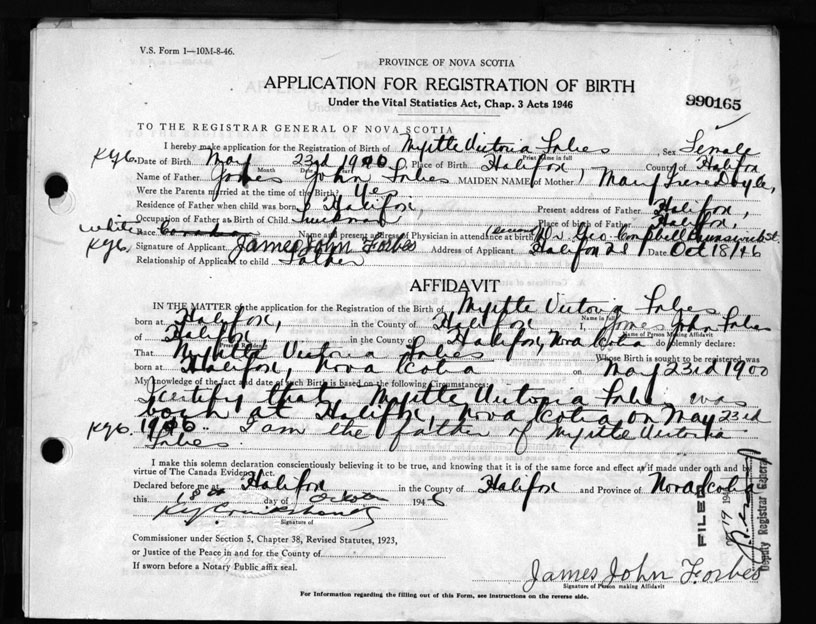 V.S. Form 1—10M-8-46.
PROVINCE OF NOVA SCOTIA
APPLICATION FOR REGISTRATION OF BIRTH
Under the Vital Statistics Act, Chap. 3 Acts 1946
990165
TO THE REGISTRAR GENERAL OF NOVA SCOTIA
I hereby make application for the Registration of Birth of Myrtle Victoria Forbes Sex Female
Print Name in full
Date of Birth May 23rd 1900 Place of Birth Halifax, County of Halifax
Month Date Year
Name of Father James John Forbes MAIDEN NAME of Mother, Mary Irene Doyle,
Were the Parents married at the time of the Birth? Yes
Residence of Father when child was born Halifax, Present address of Father Halifax,
Occupation of Father at Birth of Child Place of birth of Father Halifax,
white
Race Canadian Name and present address of Physician in attendance at birth Dr. Geo. Campbell Brunswick St.
Signature of Applicant James John Forbes Address of Applicant Halifax Date Oct 18/46
Relationship of Applicant to child Father
AFFIDAVIT
IN THE MATTER of the application for the Registration of the Birth of Myrtle Victoria Forbes
Name in full
born at Halifax, in the County of Halifax I, James John Forbes
Name of Person Making Affidavit
of Halifax in the County of Halifax, Nova Scotia do solemnly declare:
Present Residence
That Myrtle Victoria Forbes Whose Birth is sought to be registered was
born at Halifax, Nova Scotia on May 23rd 1900
My knowledge of the fact and date of such Birth is based on the following Circumstances:
I certify that Myrtle Victoria Forbes was
born at Halifax, Nova Scotia on May 23rd
1900. I am the father of Myrtle Victoria
Forbes.
I make this solemn declaration conscientiously believing it to be true, and knowing that it is of the same force and effect as if made under oath and by
virtue of The Canada Evidence Act.
Declared before me at Halifax in the County of Halifax and Province of Nova Scotia
this 18th day of October 1946
Signature of
Commissioner under Section 5, Chapter 38, Revised Statutes, 1923,
or Justice of the Peace in and for the County of
If sworn before a Notary Public affix seal.
James John Forbes
Signature of Person making Affidavit
For Information regarding the filling out of this Form, see instructions on the reverse side.
FILED
Deputy Registrar General